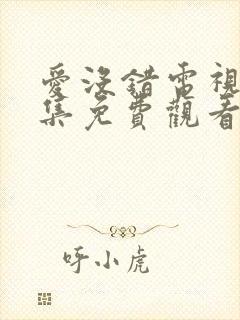 愛沒錯電視
集免費觀看
呼小虎